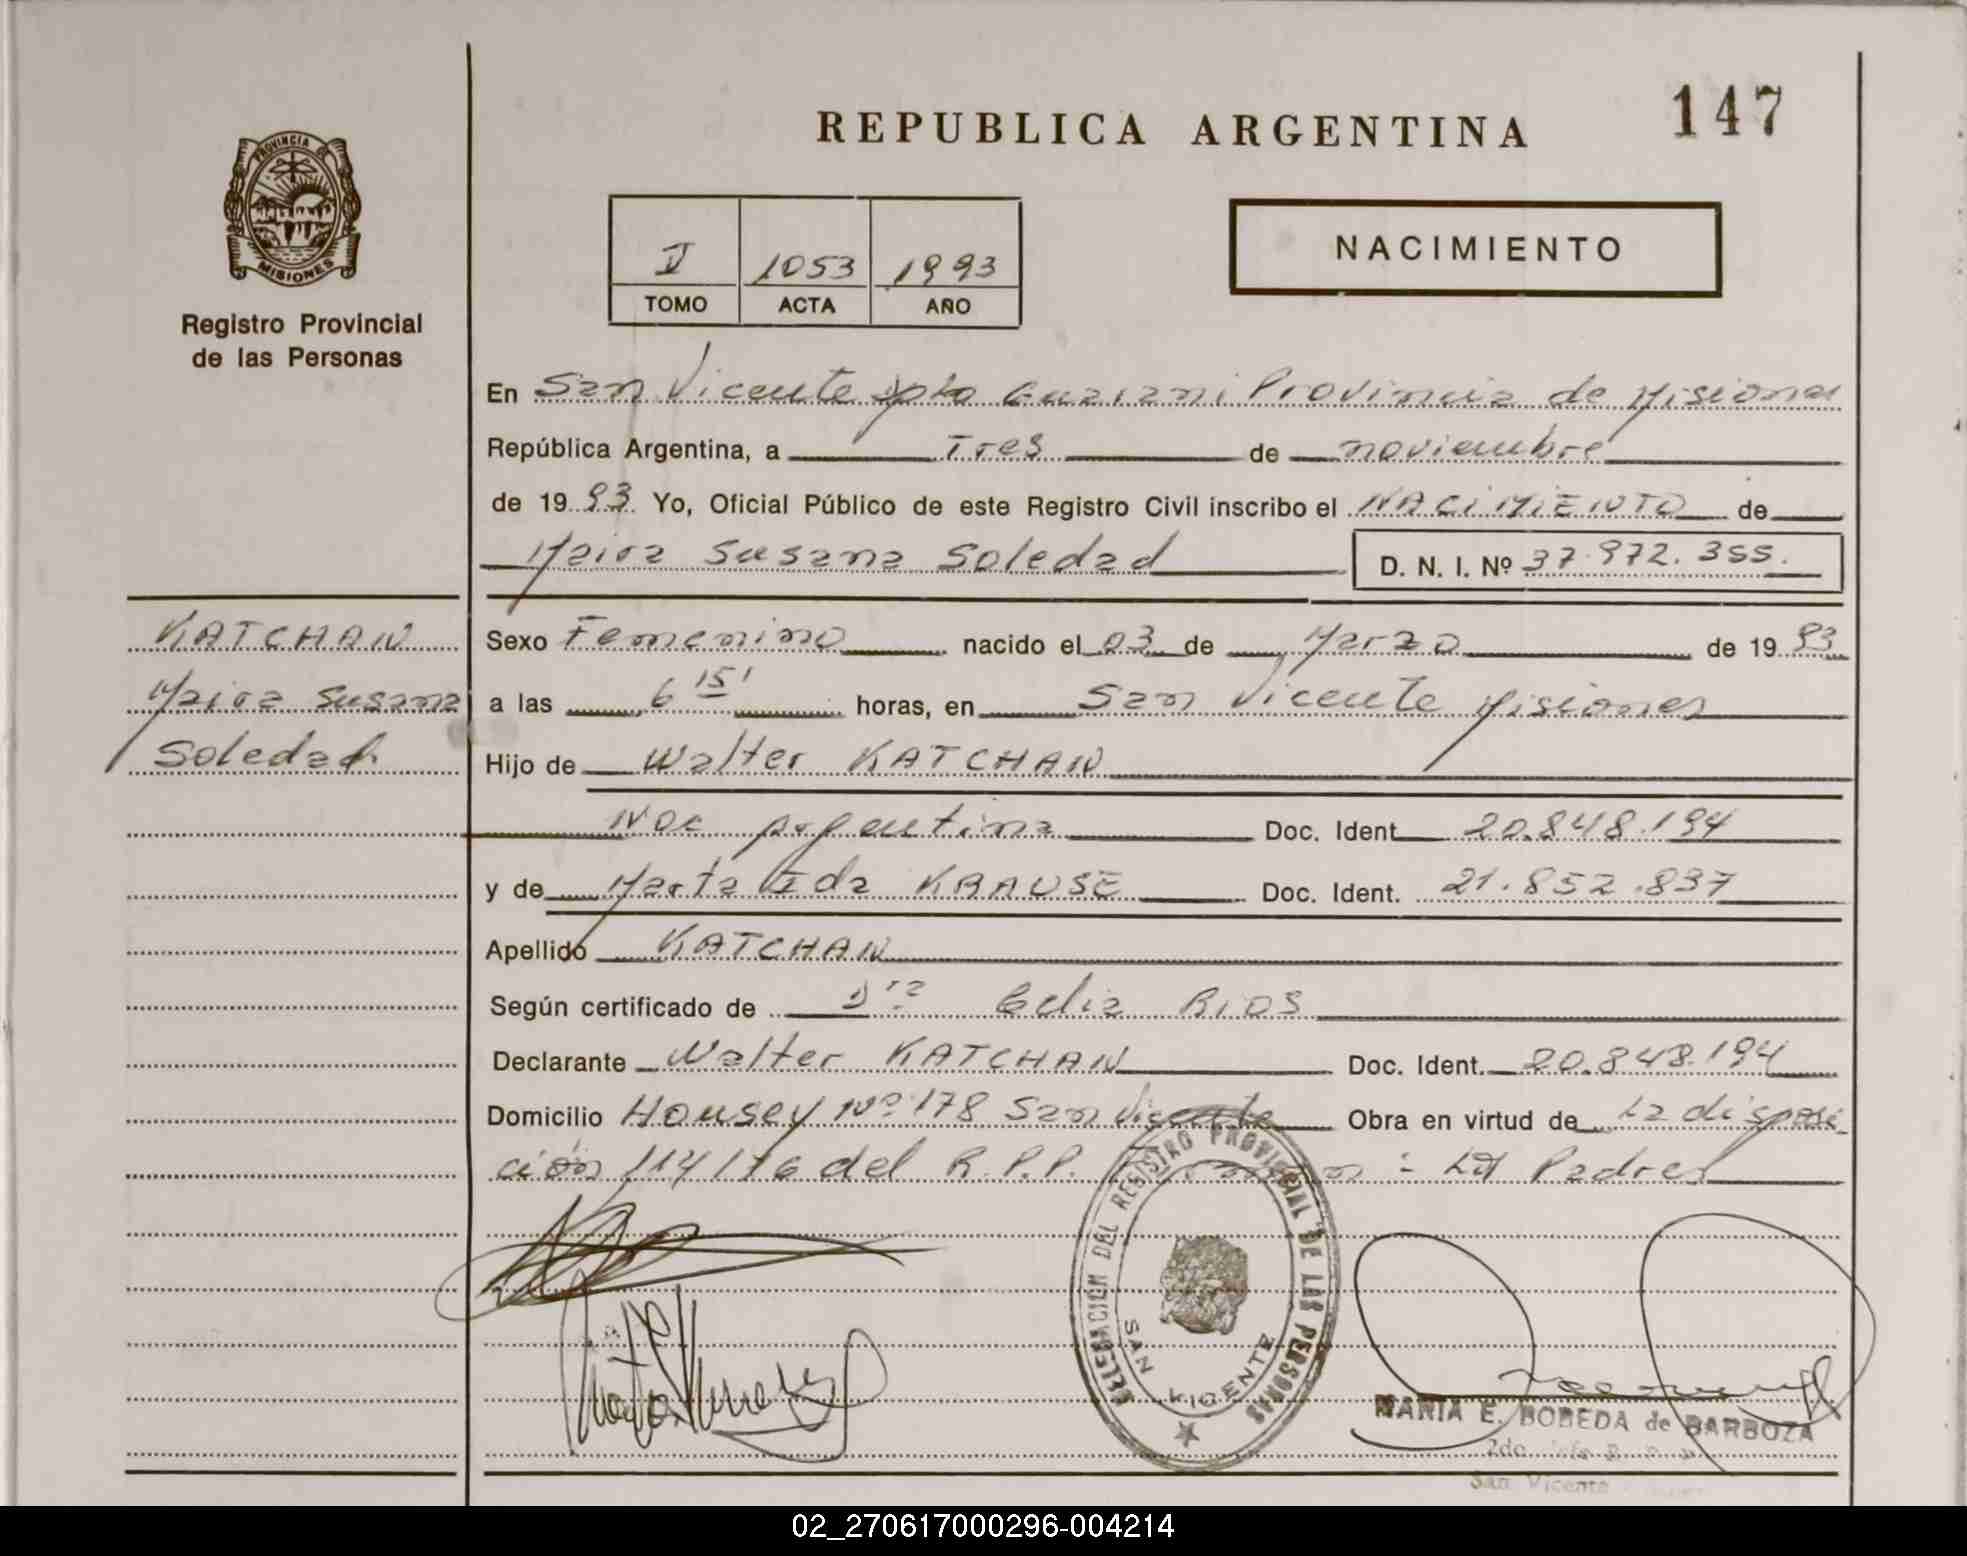 147
REPUBLICA ARGENTINA
PROVINCIA DE
MISIONES
Registro Provincial
de las Personas
1053 1993
TOMO ACTA AÑO
NACIMIENTO
En San Vicente Dpto Guarani Provincia de Misiones
República Argentina, a Tres de noviembre
de 1993 Yo, Oficial Público de este Registro Civil inscribo el NACIMIENTO de
Maira Susana Soledad D. N. I. Nº 37.972.355.
KATCHAN
Maira Susana
Soledad
Sexo Femenino nacido el 03 de Marzo de 1993
a las 6 15' horas, en San Vicente Misiones
Hijo de Walter KATCHAN
Nac Argentina Doc. Ident 20.848.194
y de Marta Ida KRAUSE Doc. Ident. 21.852.837
Apellido KATCHAN
Según certificado de Dra Celia RIOS
Declarante Walter KATCHAN Doc. Ident. 20.848.194
Domicilio Housey Nº 178 San Vicente Obra en virtud de La disposi
ción 114/76 del R.P.P. Padres
DELEGACION DEL REGISTRO PROVINCIAL DE LAS PERSONAS
SAN VICENTE
MARIA E. BOBEDA de BARBOZA
2do
San Vicente
02_270617000296-004214